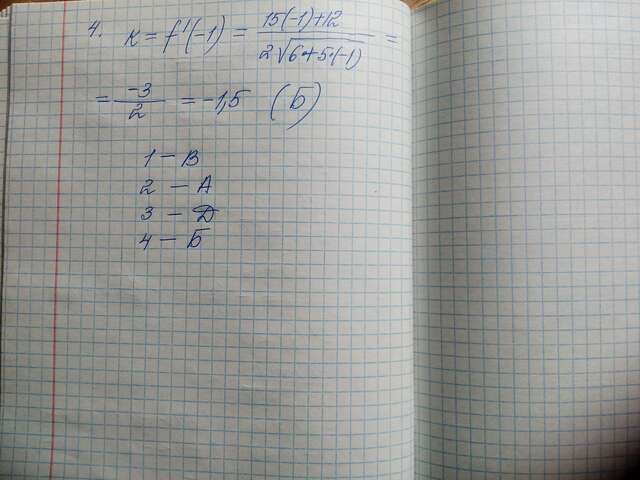 4. к = f'(-1) = 15(-1)+12 / 2√6+5·(-1) =
= -3 / 2 = -1,5 (Б)
1 – В
2 – А
3 – Д
4 – Б